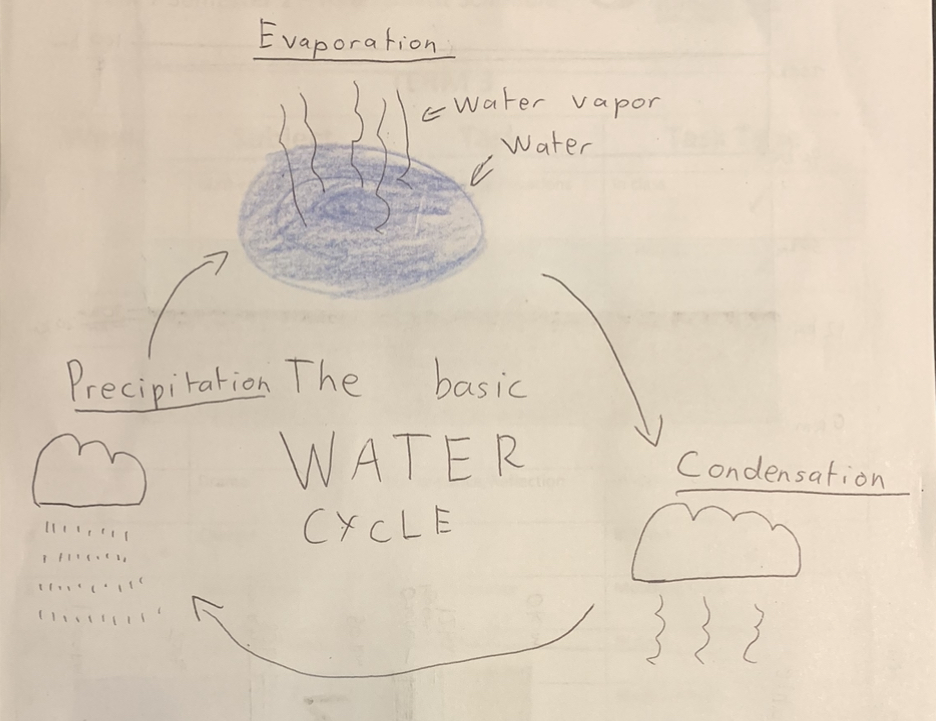 Evaporation
Water vapor
Water
Precipitation
The basic
WATER
CYCLE
Condensation